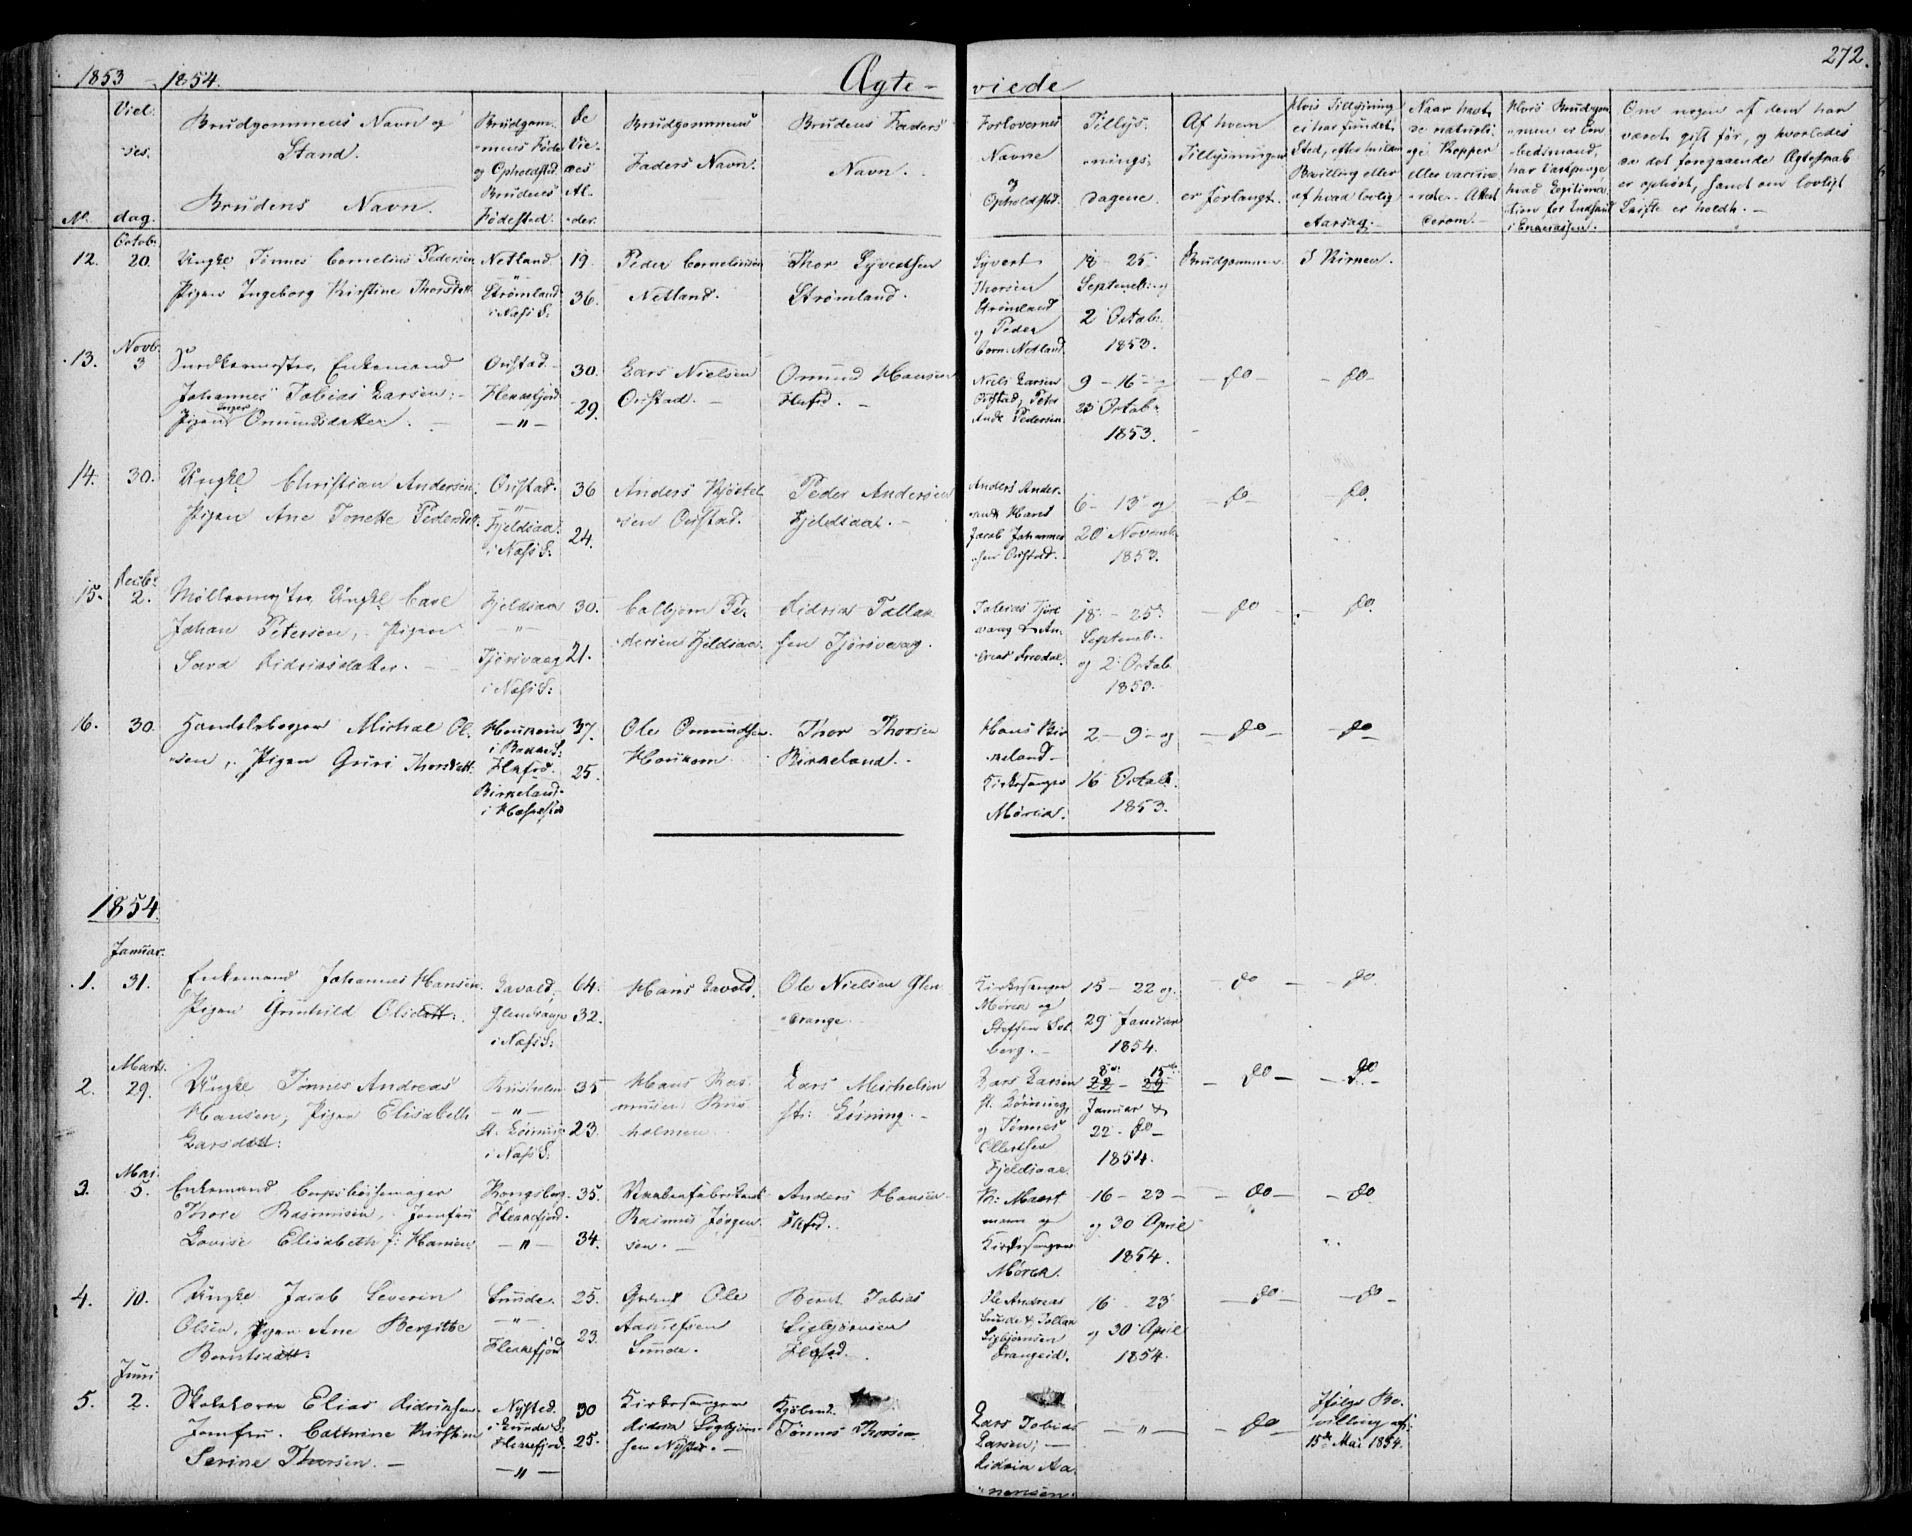 1853 - 1854.
Ægte-viede
272.
No.
Viel-
ses.
dag.
Brudgommens Navn og
Stand.
Brudens Navn.
Brudgom-
mens Føde
og Opholdsted.
Brudens
Fødested.
De
Vie-
des
Al-
der.
Brudgommens
Faders Navn.
Brudens Faders
Navn.
Forlovernes
Navne
og
Opholdsted.
Tillys-
nings
Dagene.
Af hvem
Tillysningen
er forlangt.
Hvis Tillysning
ei har fundet
Sted, efter hvilken
Bevilling eller
af hvad lovlig
Aarsag.
Naar havt
de naturli-
ge Kopper
eller vaccine-
rede. Attest
derom.
Hvis Brudgom-
men er Em-
bedsmand,
har Vartpenge
hvad Legitima-
tion for Indskud
i Enkecassen.
Om nogen af dem har
været gift før, og hvorledes
av det foregaaende Ægteskab
er ophørt, samt om lovligt
Skifte er holdt.
12.
Octob:
20.
Ungkl Tønnes Cornelius Pedersen
Pigen Ingeborg Kirstine Thorsdatt.
Netland.
Strømland
i Næs S:
19.
36.
Peder Corneliusen
Netland.
Thor Syvertsen
Strømland.
Syvert
Thorsen
Strømland
og Peder
Corn. Netland.
18 - 25
Septemb: og
2 Octob:
1853.
Brudgommen
I Kirken.
13.
Novb:
3
Enkemand
Johannes Tobias Larsen,
Pigen Inger Omundsdatter.
Oustad.
Flekkefjord
- " -
30.
29.
Lars Nielsen
Oustad.
Omund Hansen
Flkfd.
Niels Larsen
Oustad, Peter
Andr Pedersen
9 - 16 - og
23 Octob:
1853.
- do -
- do -
14.
30.
Ungkl Christian Andersen,
Pigen Ane Tonette Pedersdt.
Oustad.
- " -
Fjeldsaa.
i Næs S:
36
24.
Anders Kjøstel-
sen Oustad.
Peder Andersen
Fjeldsaa.
Anders Ander-
Hans
Jacob Johannes
sen Oustad.
6 - 13 og
20 Novemb:
1853.
- do -
- do.
15.
Decbr:
2.
Møllermester, Ungkl Carl
Johan Petersen, Pigen
Sara Didriksdatter.
Fjeldsaa
- " -
Tjørsvaag
i Næs S:
30.
21.
Colbjørn Pe-
dersen Fjeldsaa.
Didrik Tollak-
sen Tjørsvaag.
Tobias Tjørs-
vaag & An-
dreas
18 - 25
Septemb:
og 2 Octob
1853.
- do -
- do.
16.
30.
Handelsborger Michal Ol-
sen, Pigen Guri Thorsdatt.
Houkom
i Bakke S:
Flkfd.
Birkeland
37.
25.
Ole Omundsen
Houkom
Thor Thorsen
Birkeland.
Hans Bir-
keland
Kirkesanger
Mørck.
2 - 9 - og
16 Octob:
1853.
- do -
- do -
1854.
1.
Januar.
31.
Enkemand Johannes Hansen.
Pigen Gunhild Olsdatt:
Lavold,
Glendrange
i Næs S:
64.
32.
Hans Lavold.
Ole Nielsen Glen-
drange.
Kirkesanger
Mørck og
Steffen Sol-
berg.
15 - 22 og
29 Januar
1854.
- do -
- do.
2.
Marts.
29.
Ungkl Tønnes Andreas
Hansen, Pigen Elisabeth
Larsdatt:
- " -
i Næs S:
35
23.
Hans Ras-
mussen
Lars Michelsen
st: Løining.
Lars Larsen
st. Løining,
og Tønnes
Ellertsen
Fjeldsaae.
8de 15de
22 - 29
Januar &
22 - do -
1854.
- do -
- do -
3.
Mai.
5.
Enkemand Corpsbøssemager
Thore Rasmussen, Jomfru
Lovise Elisabeth f: Hansen
Kongsberg
Flekkefjord.
- " -
35.
34.
Vaabenfabrikant
Rasmus Jørgen-
sen.
Anders Hansen
Flkfd.
og
Kirkesanger
Mørck.
16 - 23 -
og 30 April
1854.
- do -
- do
4.
10.
Ungkl Jacob Severin
Olsen, Pigen Ane Bergitte
Berntsdatt:
Lunde.
- " -
Flekkefjord
25.
23.
Ole
Aanensen
Lunde.
Bernt Tobias
Sigbjørnsen
Flkfd.
Ole Andreas
Lunde & Tollak
Sigbjørnsen
Drangeid.
16 - 23
og 30 April
1854.
- do -
- do -
5.
Juni
2.
Skolelærer Elias Didriksen.
Jomfru Cathrine Kirstine
Serine Thorsen.
Nysted.
i Lunde S:
Flekkefjord.
- " -
30
25.
Kirkesanger
Didrik Sigbjørn-
sen Nysted.
Kjøbmd.
Tønnes Thorsen
Lars Tobias
Larsen,
Didrik Aa-
nensen.
- " -
- do
Ifølge Be-
villing af
15de Mai 1854.